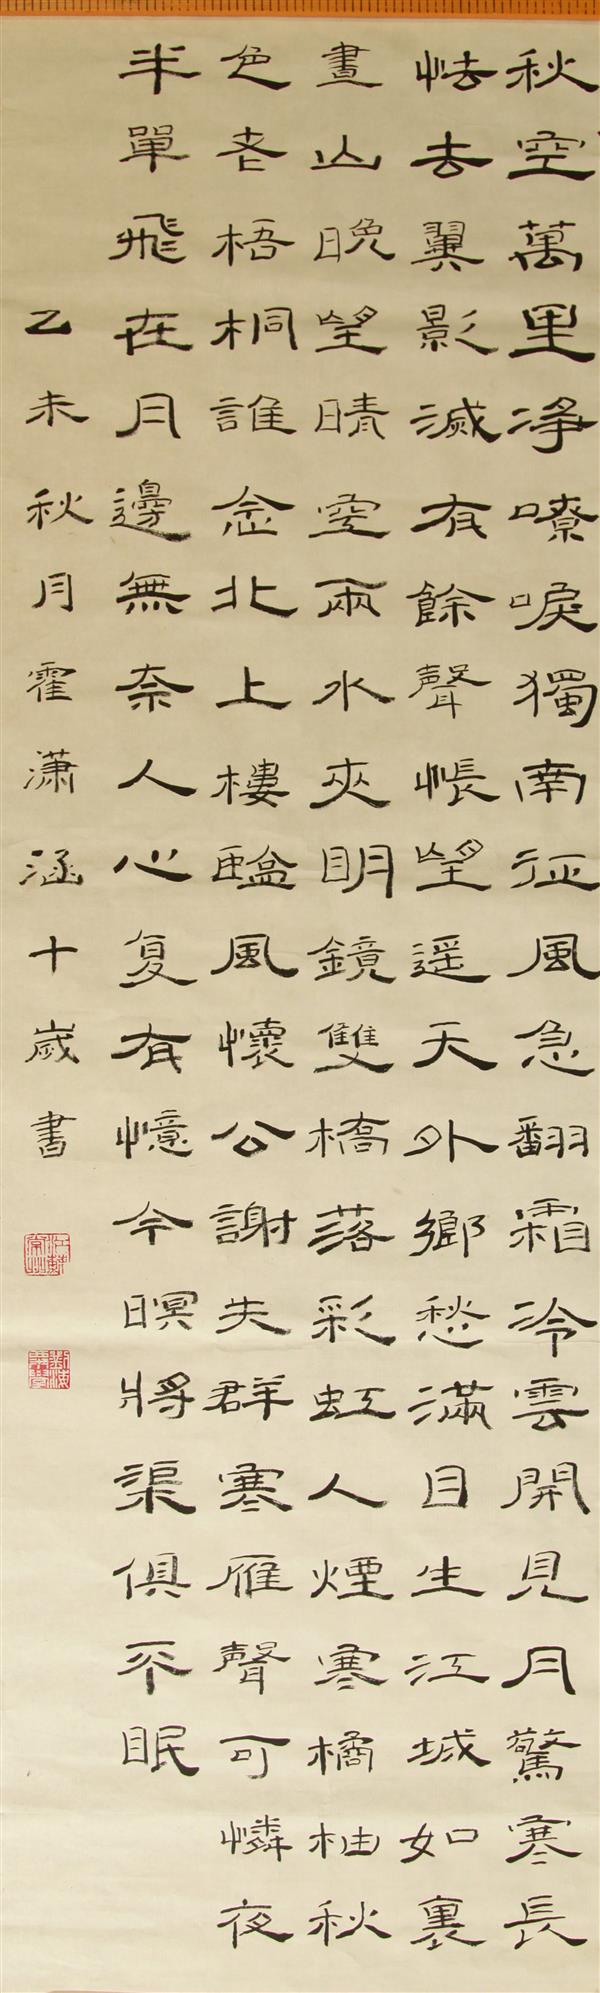 秋空萬里淨嘹唳獨南征風急翻霜冷雲開見月驚寒長
怯去翼影滅有餘聲悵望遙天外鄉愁滿目生江城如裏
畫山晚望晴空兩水夾明鏡雙橋落彩虹人煙寒橘柚秋
色老梧桐誰念北上樓臨風懷公謝失群寒雁聲可憐夜
半單飛在月邊無奈人心复有憶今暝將渠俱不眠
乙未秋月霍潇涵十歲書